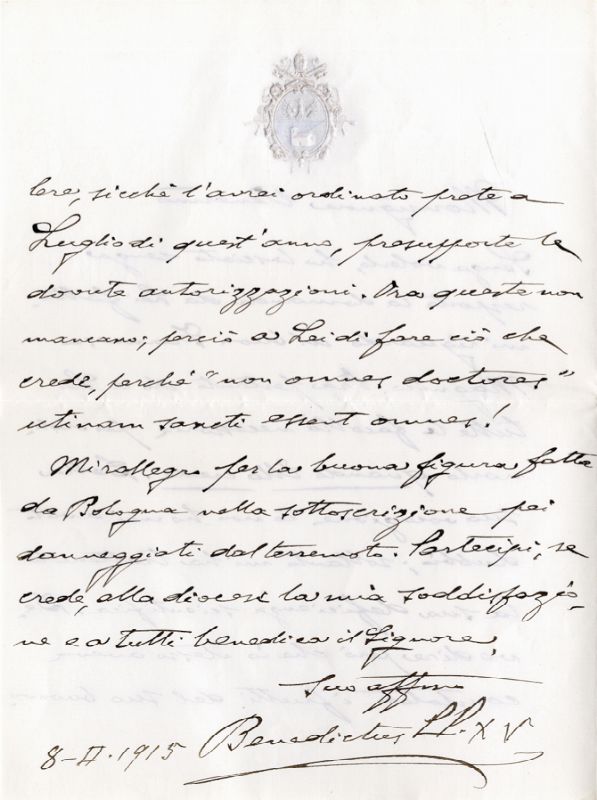 lere, sicchè l'avrei ordinato prete a
Luglio di quest'anno, presupposte le
dovute autorizzazioni. Ora queste non
mancano; perciò a Lei di fare ciò che
crede, perché "non omnes doctores"
utinam sancti essent omnes!
Mi rallegro per la buona figura fatta
da Bologna nella sottoscrizione pei
danneggiati dal terremoto. Partecipi, se
crede, alla diocesi la mia soddisfazio-
ne e a tutti benedica il Signore,
Suo affmo
8-II-1915 Benedictus PP. XV